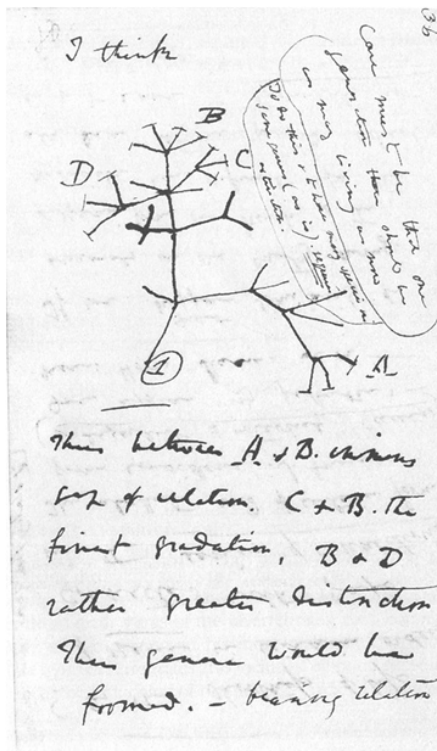 I think
36
Case must be that one
generation then should be
as many living as now
To do this & to have many species in
same genus (as is) requires
extinction
B
C
D
A
1
Thus between A & B. immens
gap of relation. C & B. the
finest gradation, B & D
rather greater distinction
Thus genera would be
formed. — bearing relation